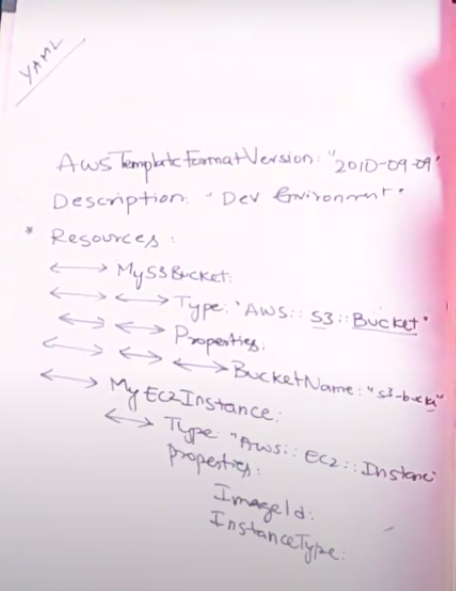 YAML
AWSTemplateFormatVersion: "2010-09-09"
Description: "Dev Environment"
* Resources:
MyS3Bucket:
Type: "AWS::S3::Bucket"
Properties:
BucketName: "s3-bucke"
MyEC2Instance:
Type: "Aws::EC2::Instanc
Properties:
ImageId:
InstanceType: